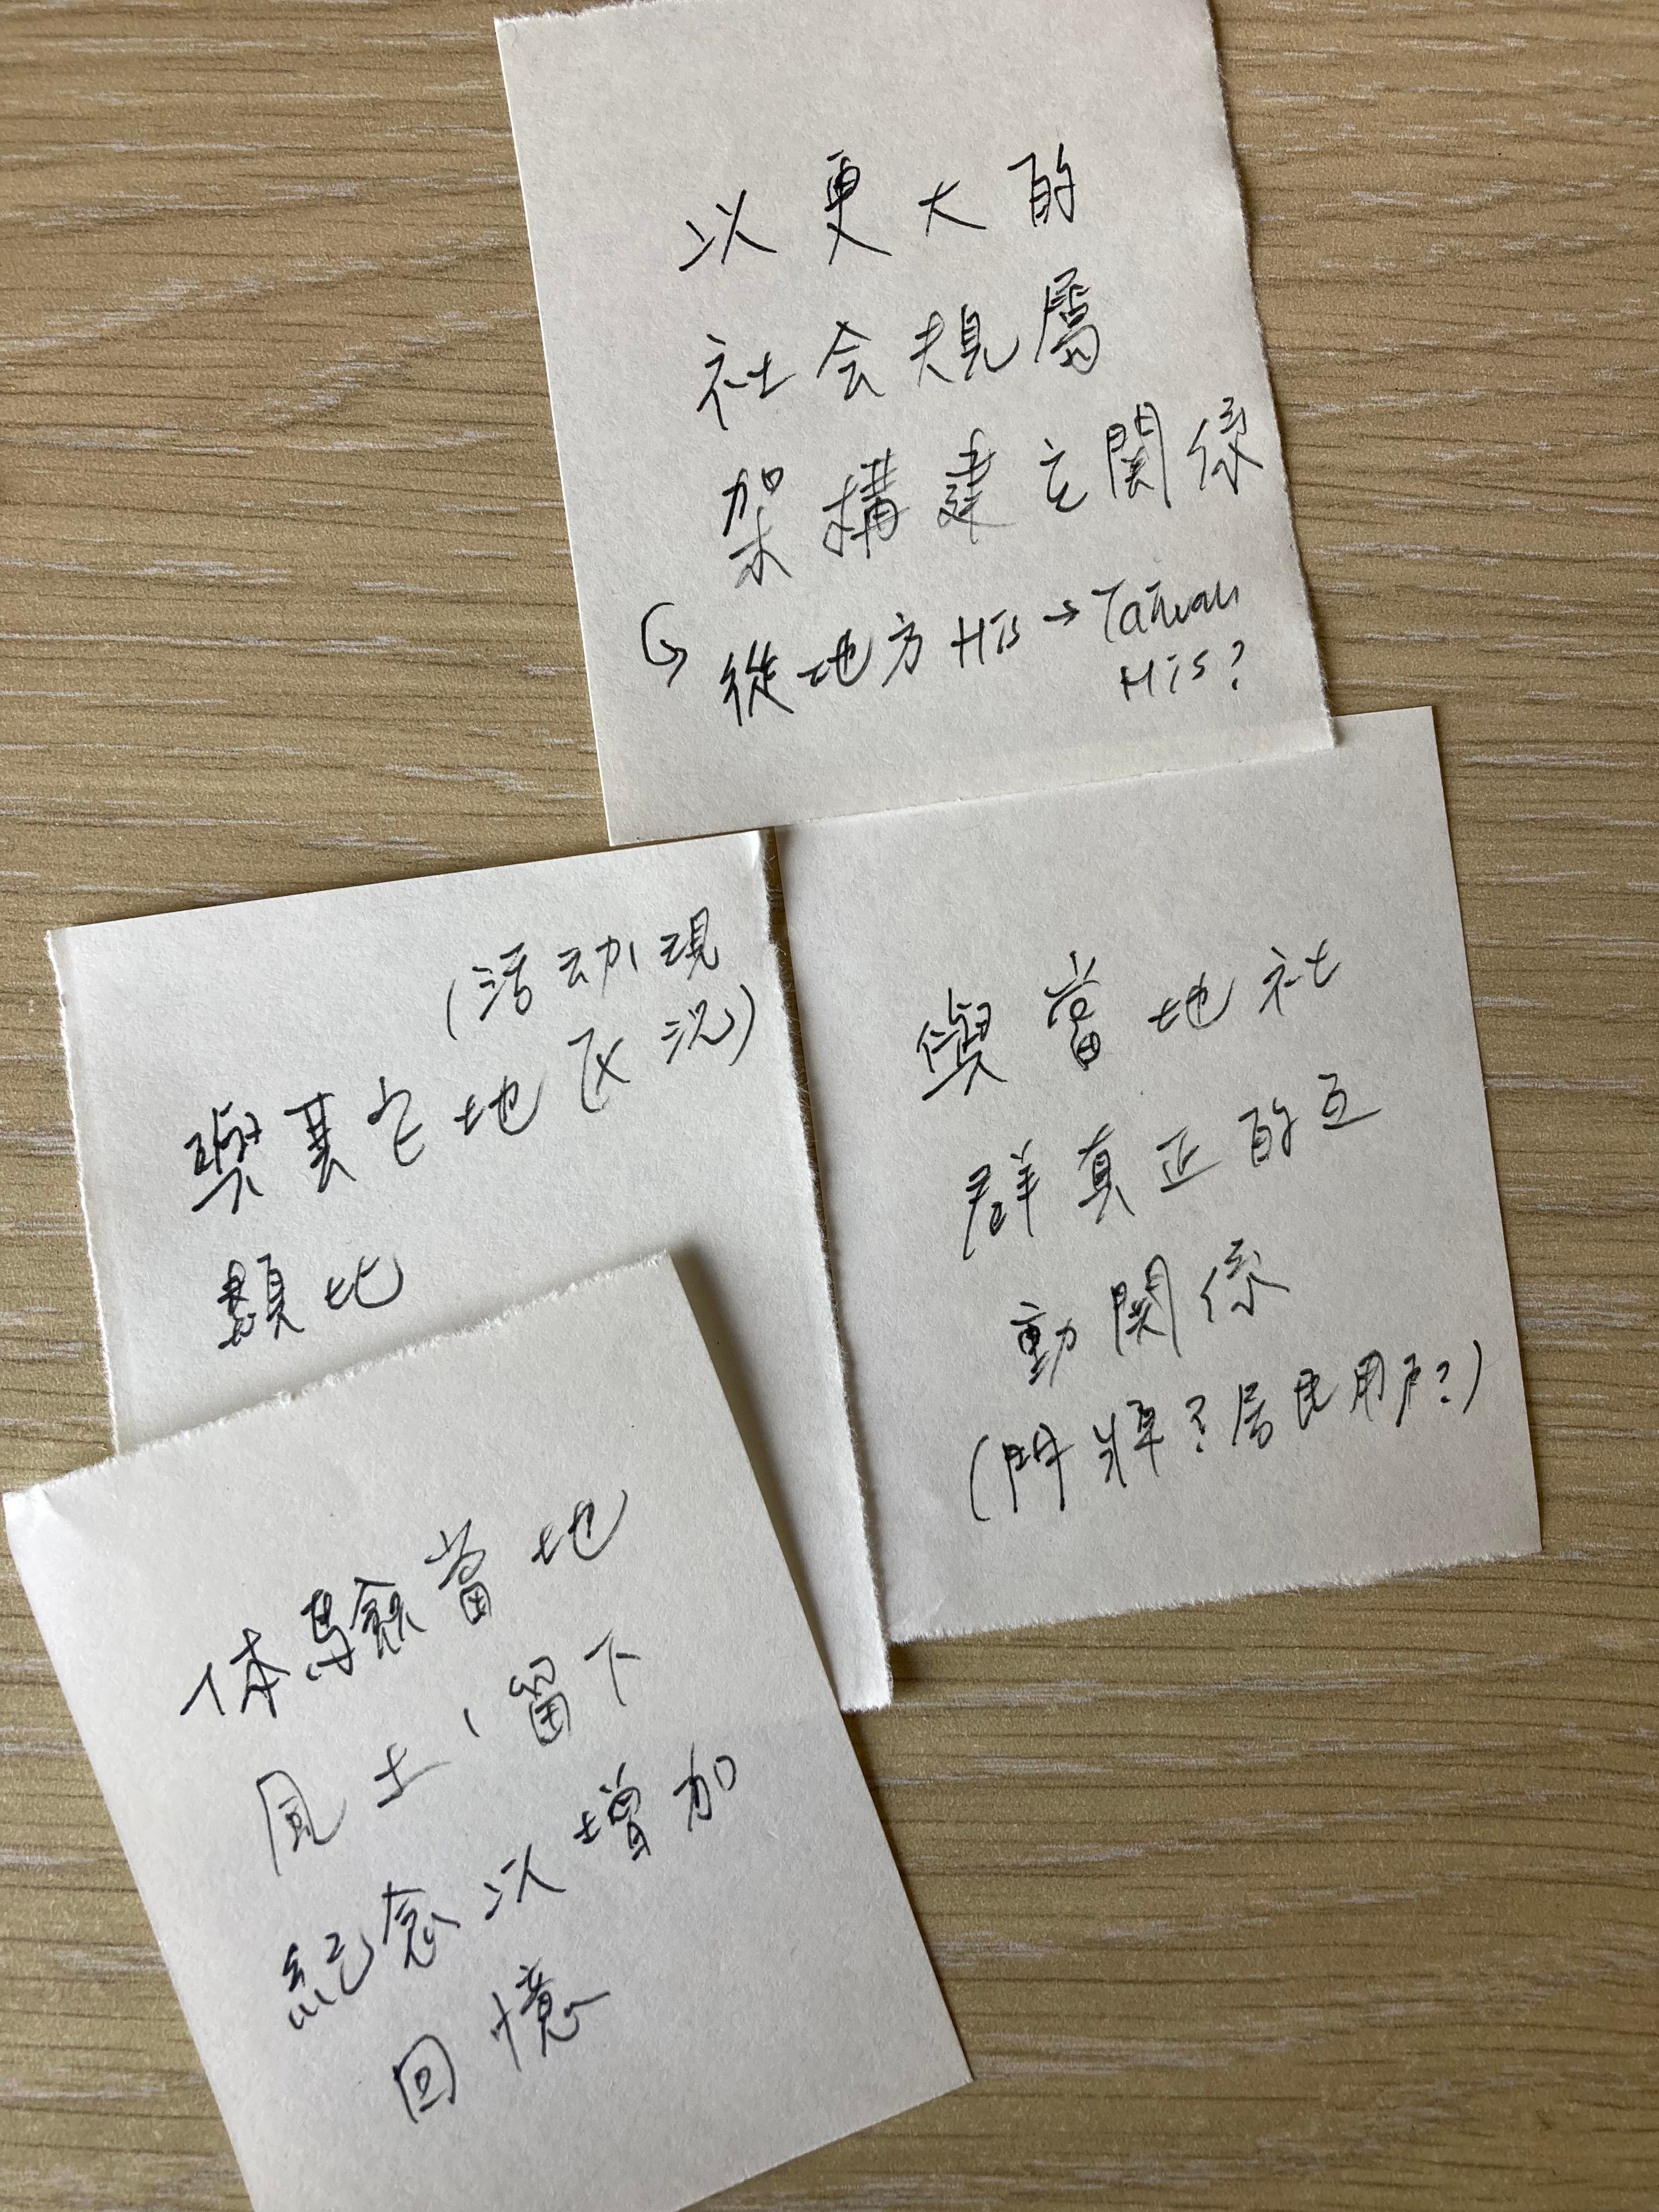 以更大的
社会規屬
架構建立関係
從地方His→Taiwan
His?
(活动現
況)
與其它地区
類比
與當地社
群真正的互
動関係
(門牌?居民用户?)
体驗當地
風土,留下
紀念以增加
回憶